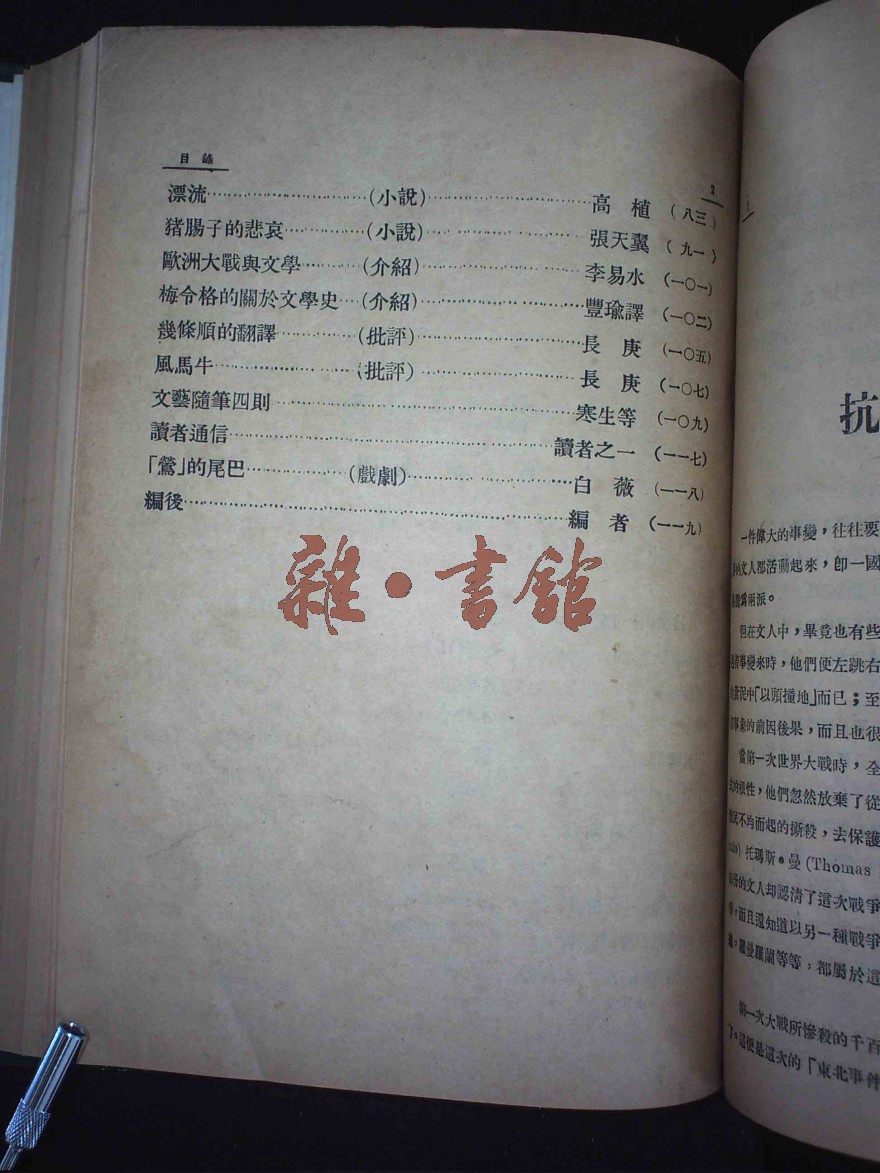 目錄
2
漂流……(小說)……高植(八三)
猪腸子的悲哀……(小說)……張天翼(九一)
歐洲大戰與文學……(介紹)……李易水(一〇一)
梅令格的關於文學史…(介紹)……豐瑜譯(一〇二)
幾條順的翻譯……(批評)……長庚(一〇五)
風馬牛……(批評)……長庚(一〇七)
文藝隨筆四則……寒生等(一〇九)
讀者通信……讀者之一(一一七)
「鶯」的尾巴……(戲劇)……白薇(一一八)
編後……編者(一一九)
雜·書館
抗
一件偉大的事變，往往要
的文人都活動起來，卽一國
爲兩派。
但在文人中，畢竟也有些
事變來時，他們便左跳右
泥中「以頭撞地」而已；至
事象的前因後果，而且也很
當第一次世界大戰時，全
的根性，他們忽然放棄了從
不均而起的撕殺，去保護
托瑪斯·曼(Thomas
的文人却認淸了這次戰爭
，而且還知道以另一種戰爭
，羅曼羅蘭等等，都屬於這
第一次大戰所慘殺的千百
了。這便是這次的「東北事件